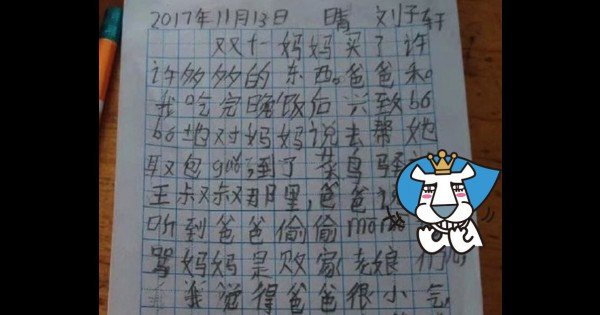 2017年11月13日 晴 刘子轩
双十一妈妈买了许
许多多的东西。爸爸和
我吃完晚饭后 兴致bó
bó地对妈妈说去帮她
取包guǒ,到了菜鸟驿
王叔叔那里,爸爸
听到爸爸偷偷
骂妈妈是败家老娘们
我觉得爸爸很小气